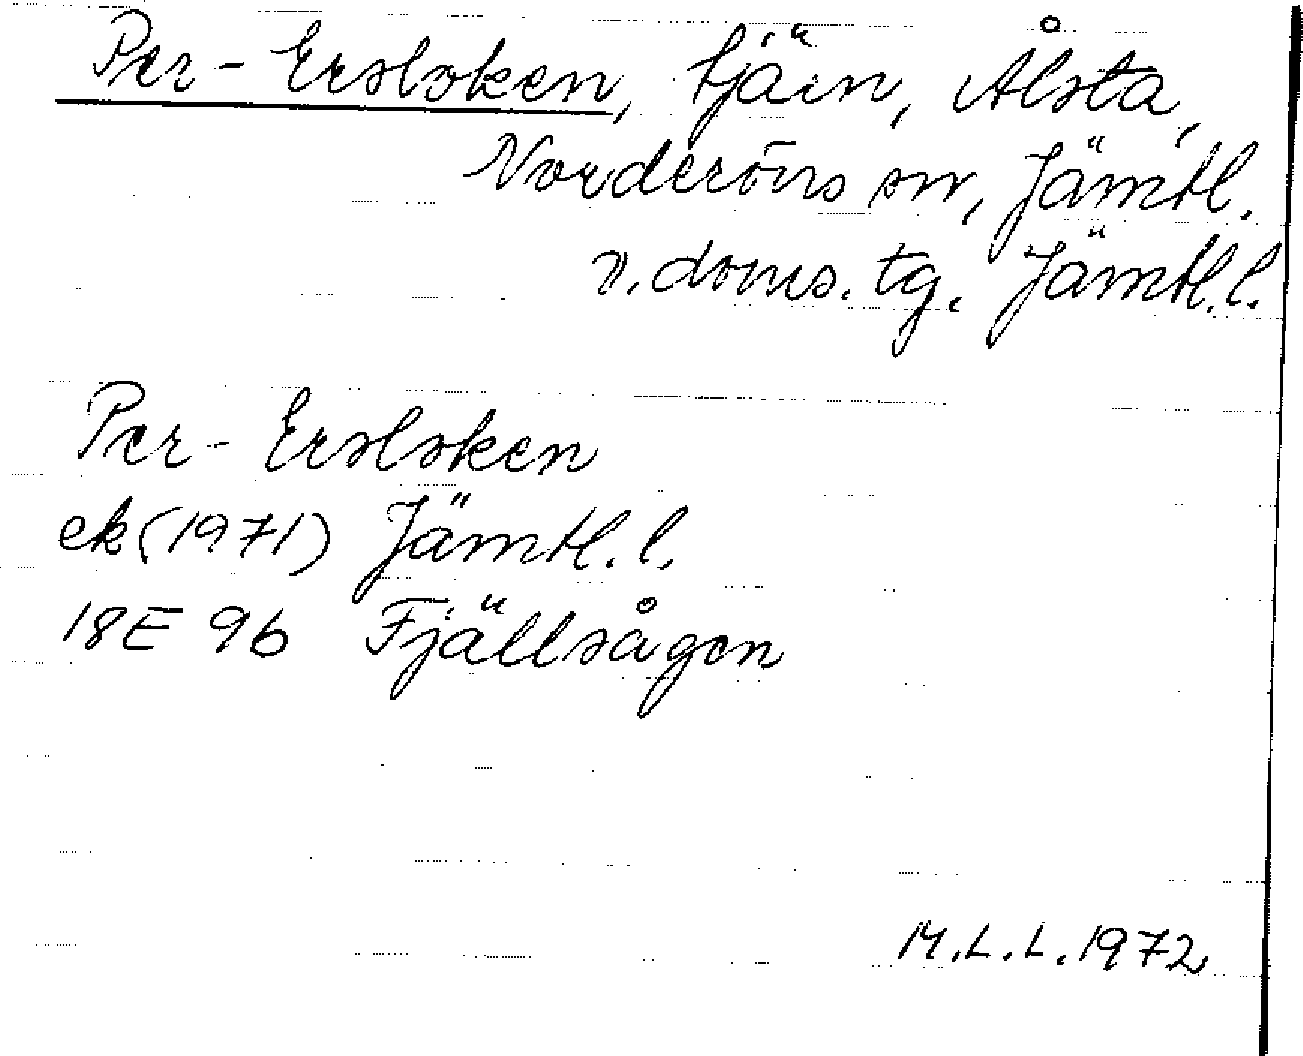 Per-Ersloken, tjärn, Ålsta,
Norderöns sn, Jämtl.
v. doms. tg. Jämtl. l.
Per-Ersloken
ek (1971) Jämtl. l.
18E 9b Fjällsågen
M.L.L. 1972